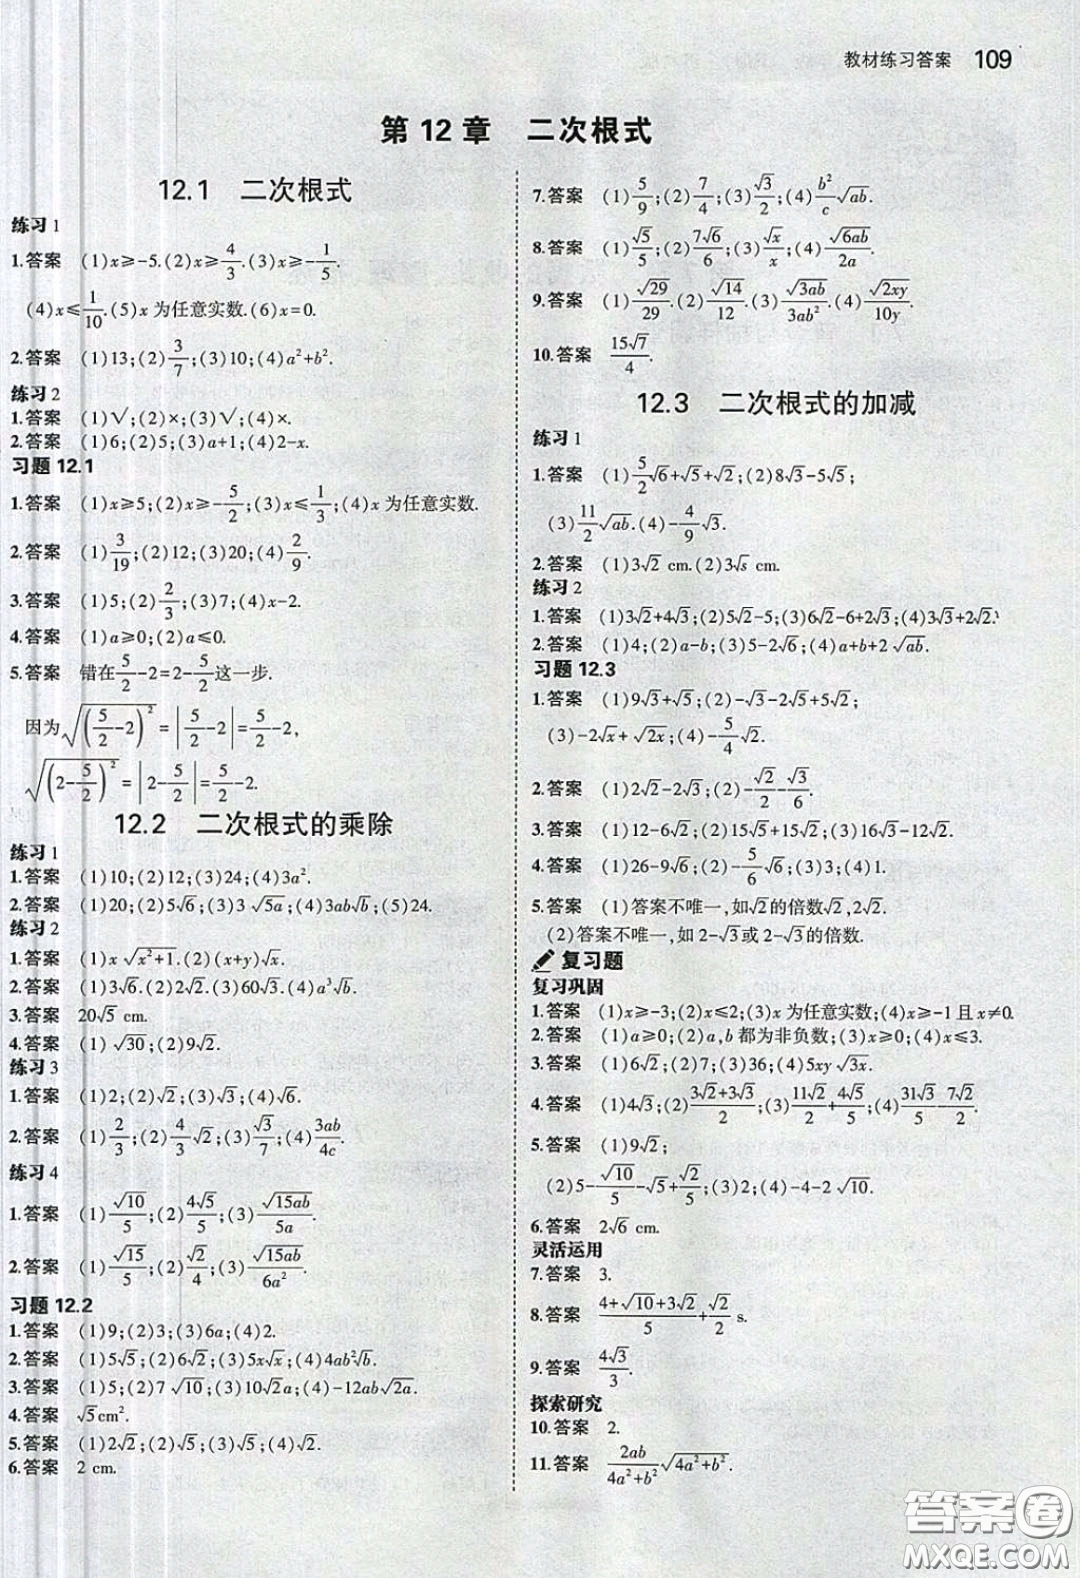 教材练习答案 109
第 12 章 二次根式
12.1 二次根式
练习 1
1.答案 (1)x≥-5.(2)x≥4/3.(3)x≥-1/5.
(4)x≤1/10.(5)x 为任意实数.(6)x=0.
2.答案 (1)13;(2)3/7;(3)10;(4)a²+b².
练习 2
1.答案 (1)√;(2)×;(3)√;(4)×.
2.答案 (1)6;(2)5;(3)a+1;(4)2-x.
习题 12.1
1.答案 (1)x≥5;(2)x≥-5/2;(3)x≤1/3;(4)x 为任意实数.
2.答案 (1)3/19;(2)12;(3)20;(4)2/9.
3.答案 (1)5;(2)2/3;(3)7;(4)x-2.
4.答案 (1)a≥0;(2)a≤0.
5.答案 错在5/2-2=2-5/2这一步.
因为√((5/2-2)²)=|5/2-2|=5/2-2,
√((2-5/2)²)=|2-5/2|=5/2-2.
12.2 二次根式的乘除
练习 1
1.答案 (1)10;(2)12;(3)24;(4)3a².
2.答案 (1)20;(2)5√6;(3)3√(5a);(4)3ab√b;(5)24.
练习 2
1.答案 (1)x√(x²+1).(2)(x+y)√x.
2.答案 (1)3√6.(2)2√2.(3)60√3.(4)a³√b.
3.答案 20√5 cm.
4.答案 (1)√30;(2)9√2.
练习 3
1.答案 (1)2;(2)√2;(3)√5;(4)√6.
2.答案 (1)2/3;(2)4/3√2;(3)√3/7;(4)3ab/4c.
练习 4
1.答案 (1)√10/5;(2)4√5/5;(3)√(15ab)/5a.
2.答案 (1)√15/5;(2)√2/4;(3)√(15ab)/6a².
习题 12.2
1.答案 (1)9;(2)3;(3)6a;(4)2.
2.答案 (1)5√5;(2)6√2;(3)5x√x;(4)4ab²√b.
3.答案 (1)5;(2)7√10;(3)10√2a;(4)-12ab√(2a).
4.答案 √5cm².
5.答案 (1)2√2;(2)√5;(3)√5;(4)√2.
6.答案 2 cm.
7.答案 (1)5/9;(2)7/4;(3)√3/2;(4)b²/c√(ab).
8.答案 (1)√5/5;(2)7√6/6;(3)√x/x;(4)√(6ab)/2a.
9.答案 (1)√29/29.(2)√14/12.(3)√(3ab)/3ab²;(4)√(2xy)/10y.
10.答案 15√7/4.
12.3 二次根式的加减
练习 1
1.答案 (1)5/2√6+√5+√2;(2)8√3-5√5;
(3)11/2√(ab).(4)-4/9√3.
2.答案 (1)3√2 cm.(2)3√s cm.
练习 2
1.答案 (1)3√2+4√3;(2)5√2-5;(3)6√2-6+2√3;(4)3√3+2√2.
2.答案 (1)4;(2)a-b;(3)5-2√6;(4)a+b+2√(ab).
习题 12.3
1.答案 (1)9√3+√5;(2)-√3-2√5+5√2;
(3)-2√x+√(2x);(4)-5/4√2.
2.答案 (1)2√2-2√3;(2)-√2/2-√3/6.
3.答案 (1)12-6√2;(2)15√5+15√2;(3)16√3-12√2.
4.答案 (1)26-9√6;(2)-5/6√6;(3)3;(4)1.
5.答案 (1)答案不唯一,如√2的倍数√2,2√2.
(2)答案不唯一,如 2-√3或 2-√3的倍数.
复习题
复习巩固
1.答案 (1)x≥-3;(2)x≤2;(3)x 为任意实数;(4)x≥-1 且 x≠0.
2.答案 (1)a≥0;(2)a,b 都为非负数;(3)x≥0;(4)x≤3.
3.答案 (1)6√2;(2)7;(3)36;(4)5xy√(3x).
4.答案 (1)4√3;(2)(3√2+3√3)/2;(3)11√2/2+4√5/5;(4)31√3/5-7√2/2.
5.答案 (1)9√2;
(2)5-√10/5-√5+√2/5;(3)2;(4)-4-2√10.
6.答案 2√6 cm.
灵活运用
7.答案 3.
8.答案 (4+√10+3√2)/5+√2/2 s.
9.答案 4√3/3.
探索研究
10.答案 2.
11.答案 2ab/(4a²+b²)√(4a²+b²).
答案圈
MXQE.COM